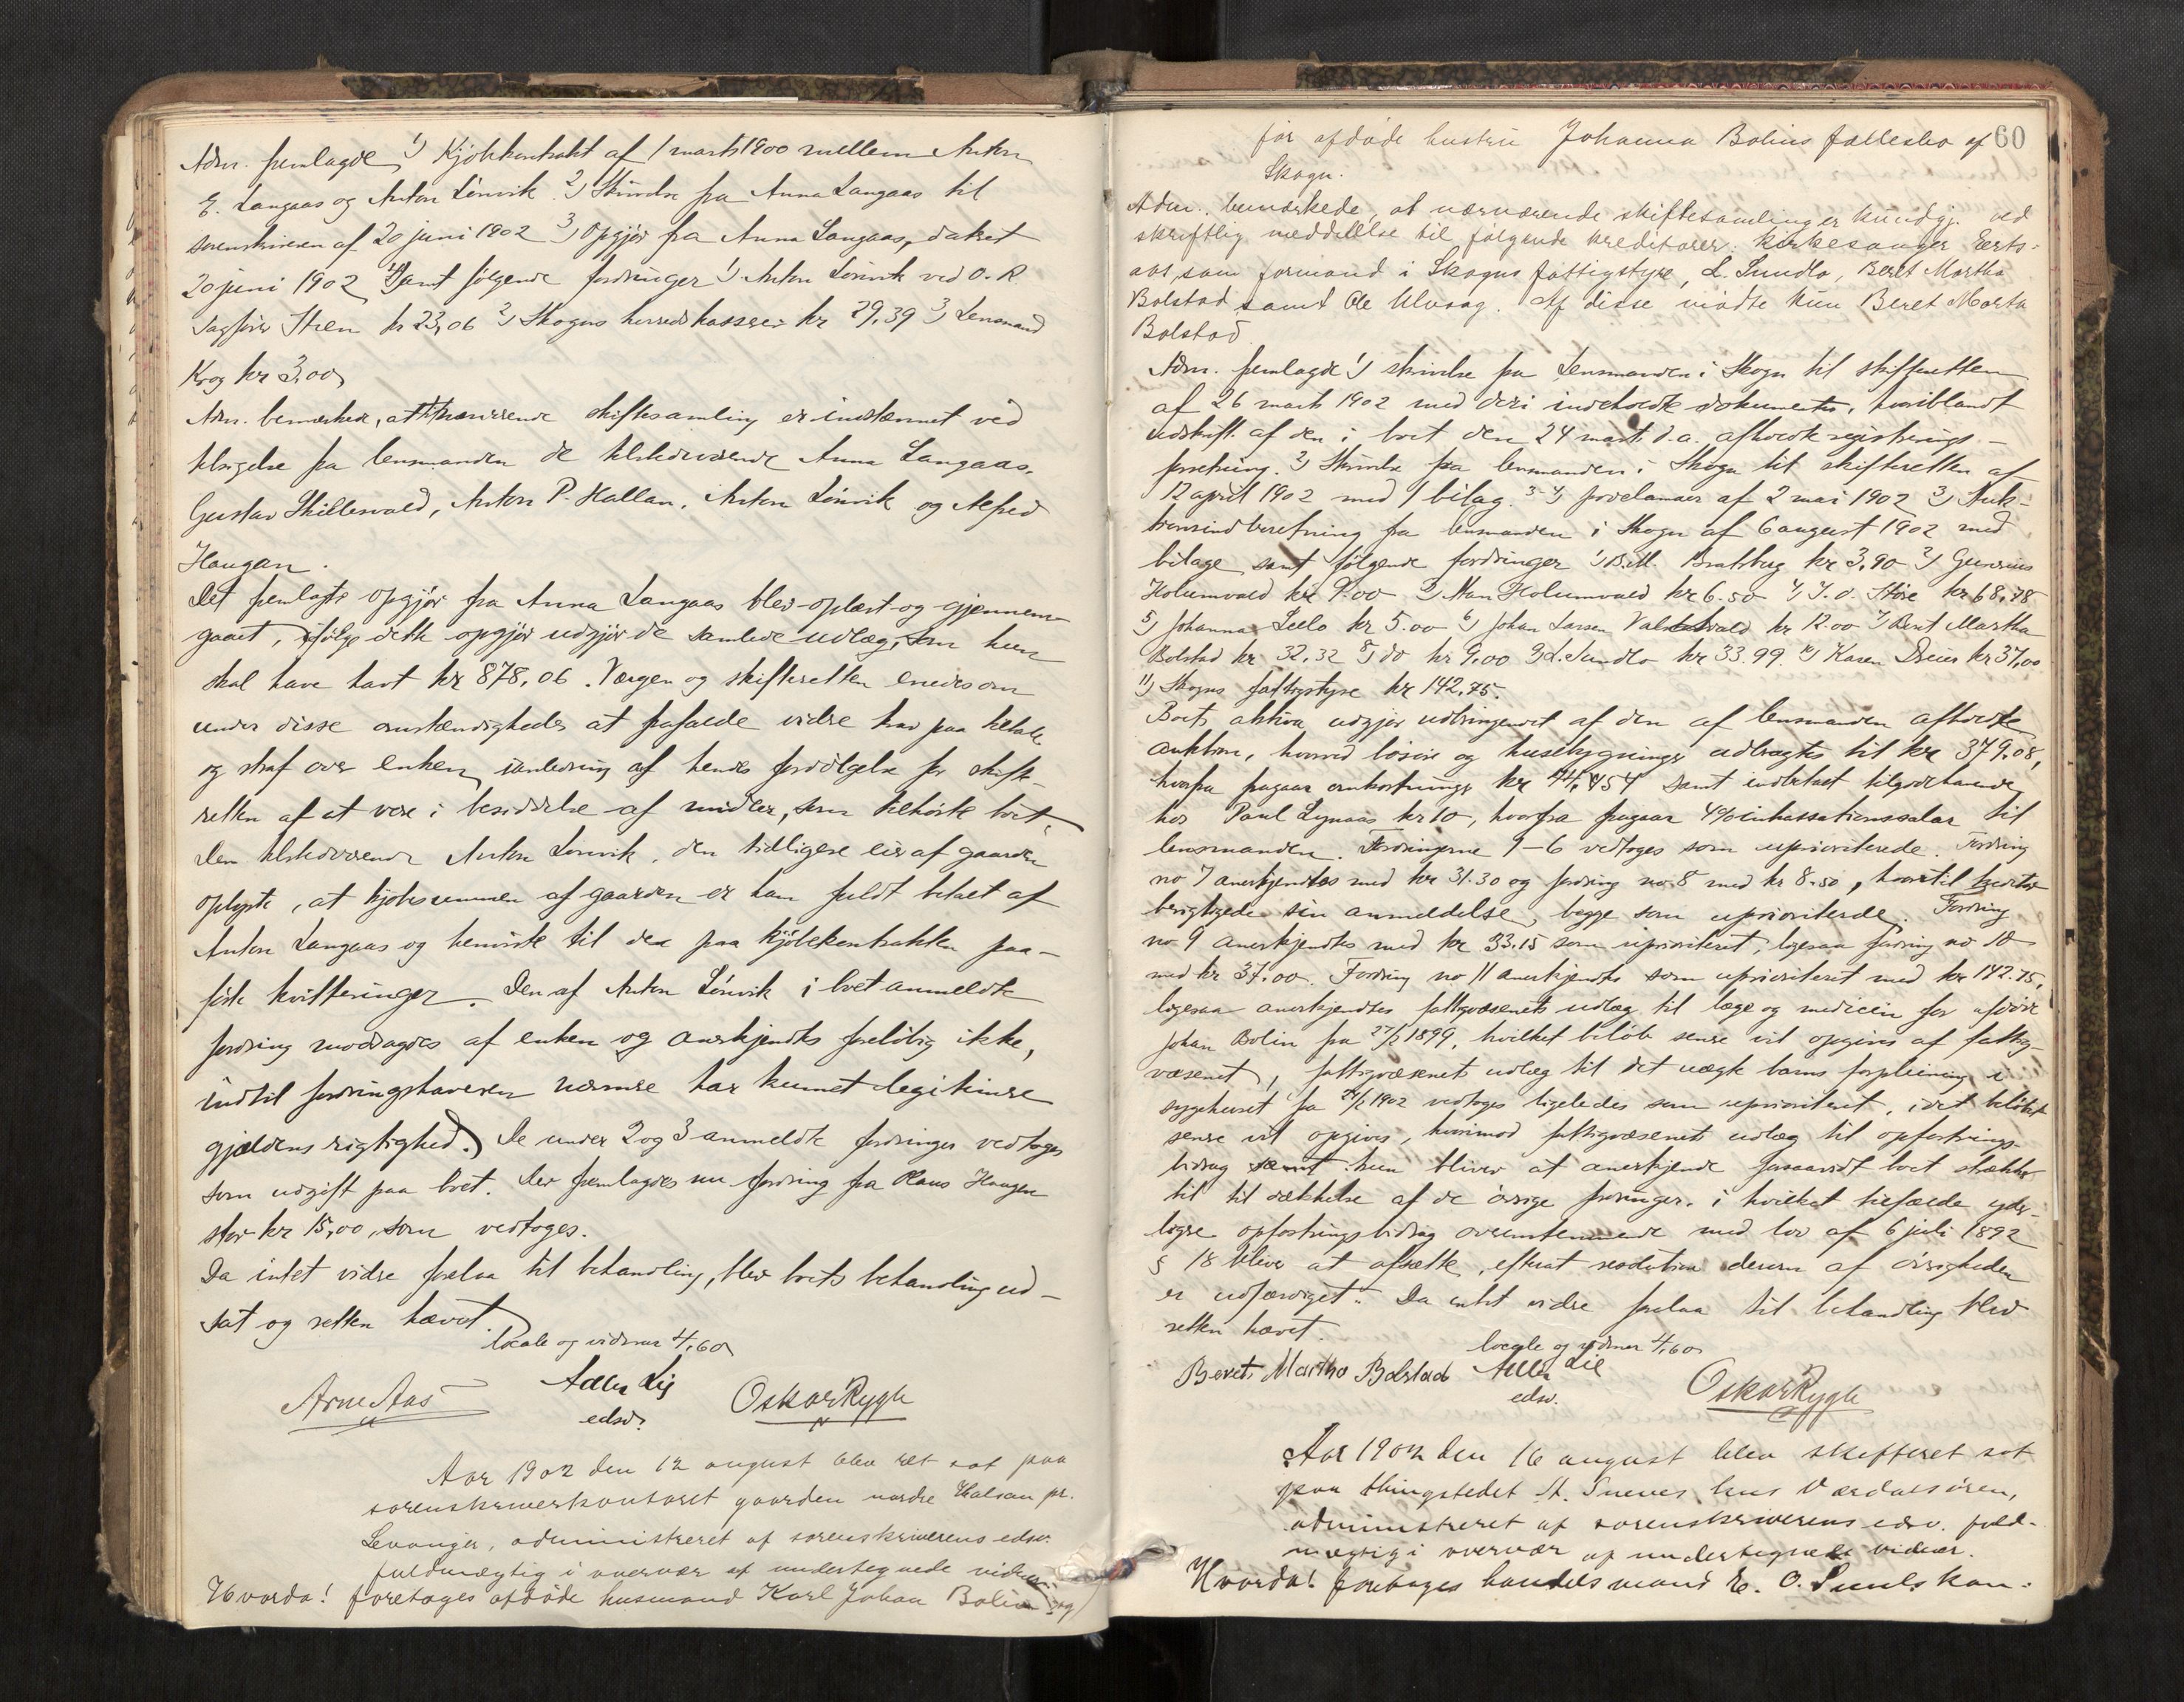 Adm. fremlagde 1) Kjøbekontrakt af 1 marts 1900 mellem Anton
E. Langaas og Anton Lönvik 2) Skrivelse fra Anna Langaas til
sorenskriveren af 20 juni 1902 3) Opgjør fra Anna Langaas, dateret
20 juni 1902 samt følgende fordringer 1) Anton Lönvik ved O. R.
Sagfører Strøm kr 23,06 2) Skogns herredskasserer kr 29,39 3) Lensmand
Krog kr 3,00,
Adm. bemærkede, at nærværende skiftesamling er indstevnet ved
tilsigelse fra lensmanden de tilstedeværende Anna Langaas,
Gustav Skillesvold, Anton P. Hallan, Anton Lönvik og Alfred
Haugan.
Det fremlagte opgjør fra Anna Langaas blev oplæst og gjennem-
gaaet, ifølge dette opgjør udgjør de samlede udlæg, som hun
skal have havt kr 878,06. Værgen og skifteretten enedes om
under disse omstændigheder at frafalde vidre krav paa tiltale
og straf over enken i anledning af hendes fordölgelse for skifte-
retten af at være i besiddelse af midler, som tilhörte boet.
Den tilstedeværende Anton Lönvik, den tidligere eier af gaarden
oplyste, at kjøbesummen af gaarden er ham fuldt betalt af
Anton Langaas og henviste til den paa kjöbekontrakten paa-
förte kvitteringer. Den af Anton Lönvik i boet anmeldte
fordring modsagdes af enken og anerkjendtes foreløbig ikke,
indtil fordringshaveren nærmere har kunnet legitimere
gjældens rigtighed. De under 2 og 3 anmeldte fordringer vedtoges
som udgift paa boet. Der fremlagdes nu fordring fra Klaus Haugen
stor kr 15,00, som vedtoges.
Da intet vidre forelaa til behandling, blev boets behandling ud-
sat og retten hævet.
locale og vidner 4,60
Arne Aas Adler Lie Oskar Rygh
edsv.
Aar 1902 den 12 august blev ret sat paa
sorenskriverkontoret gaarden nordre Halsan pr.
Levanger, administreret af sorenskriverens edsv.
fuldmægtig i overvær af undertegnede vidner.
Hvorda! foretoges afdöde husmand Karl Johan Bolin og
60
før afdøde hustru Johanna Bolins fællesbo af
Skogn.
Adm. bemærkede, at nærværende skiftesamling er kundgj. ved
skriftlig meddelelse til følgende kreditorer: kirkesanger Eerts-
aas, som formand i Skogns fattigstyre, L. Sundlo, Beret Martha
Bolstad samt Ole Ulvaag. Af disse mødte kun Beret Marta
Bolstad.
Adm. fremlagde 1) skrivelse fra Lensmanden i Skogn til skifteretten
af 26 marts 1902 med deri indeholdte dokumenter, hvoriblandt
udskrift af den i boet den 24 marts d.a. afholdte registrerings-
forretning. 2) Skrivelse fra lensmanden i Skogn til skifteretten af
12 april 1902 med 1 bilag. 3) proclamaer af 2 mai 1902 3) Auk-
tionsindberetning fra lensmanden i Skogn af 6 august 1902 med
bilage samt følgende fordringer 1) B. M. Bratberg kr 3,90 2) Gunerius
Holumvald kr 9.00 3) Nan Holumvald kr 6.50 4) J. O. Støre kr 68,78
5) Johanna Leelo kr 5.00 6) Johan Larsen kr 12.00 7) Beret Martha
Bolstad kr 32,32 8) do kr 9,00 9) L. Sundlo kr 33.99. 10) Karen Dreier kr 37,00
11) Skogns fattigstyre kr 142,75.
Boets aktiva udgjør udbringendet af den af lensmanden afholdte
auktion, hvorved løsøre og husebygninger udbragtes til kr 379,08,
hvorfra fragaar omkostninger kr 44,54 samt indbetalt tilgodehavende
hos Paul Lynaas kr 10, hvorfra fragaar 4% inkassationssalær til
lensmanden. Fordringerne 1-6 vedtoges som uprioriterede. Fordring
no 7 anerkjendtes med kr 31.30 og fordring no 8 med kr 8.50, hvortil kreditor
berigtigede sin anmeldelse, begge som uprioriterede. Fordring
no 9 anerkjendtes med kr 33.15 som uprioriteret, ligesaa fordring no 10
med kr 37.00. Fordring no 11 anerkjendtes som uprioriteret med kr 142.75,
ligesaa anerkjendtes fattigvæsenets udlæg til læge og medicin for afdöde
Johan Bolin fra 27/2 1899, hvilket belöb senere vil opgives af fattig-
væsenet, fattigvæsenets udlæg til det uægte barns forpleining i
sygehuset fra 24/2 1902 vedtoges ligeledes som uprioriteret, idet beløbet
senere vil opgives, hvorimod fattigvæsenets udlæg til opfostrings-
bidrag kun bliver at anerkjende forsaavidt boet strækker
til til dækkelse af de övrige fordringer, i hvilket tilfælde yder-
ligere opfostringsbidrag overensstemmende med lov af 6 juli 1892
§ 18 bliver at afsætte, efterat resolution derom af övrigheden
er udfærdiget. Da intet vidre forelaa til behandling blev
retten hævet.
locale og vidner 4,60
Beret Martha Bolstad Adler Lie Oskar Rygh
edsv.
Aar 1902 den 16 august blev skifteret sat
paa thingstedet St. Sneves hus Værdalsören,
administreret af sorenskriverens edsv. fuld-
mægtig i overvær af undertegnede vidner.
Hvorda! foretoges handelsmand E. O. Suuls kon-